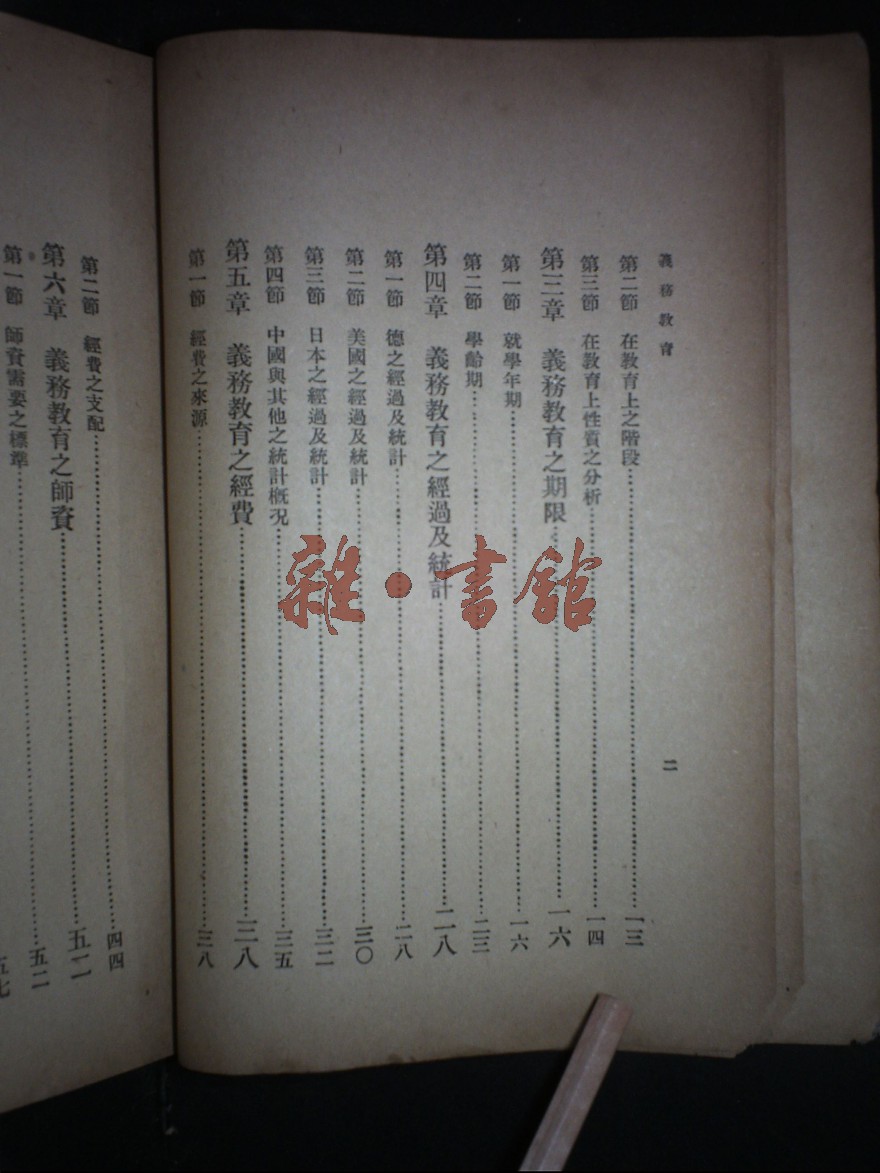 義務教育 二
第二節 在教育上之階段……一三
第三節 在教育上性質之分析……一四
第三章 義務教育之期限……一六
第一節 就學年期……一六
第二節 學齡期……二三
第四章 義務教育之經過及統計……二八
第一節 德之經過及統計……二八
第二節 美國之經過及統計……三〇
第三節 日本之經過及統計……三二
第四節 中國與其他之統計概況……三五
第五章 義務教育之經費……三八
第一節 經費之來源……三八
第二節 經費之支配……四四
第六章 義務教育之師資……五二
第一節 師資需要之標準……五二
雜·書館